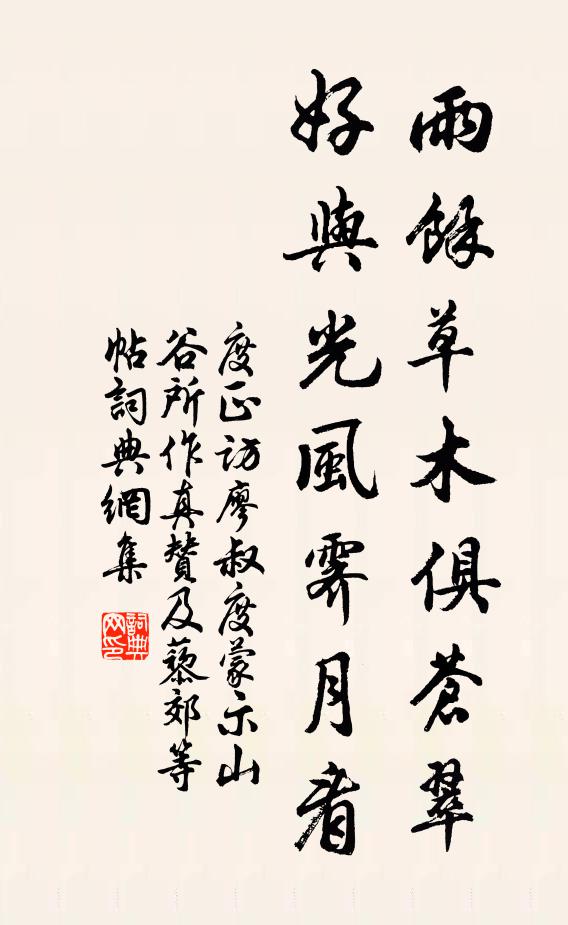 雨餘草木俱蒼翠
好與光風霽月看
度正訪廖叔度蒙示山
谷所作真贊及藜郊等
帖詞典網集
詞典
网印